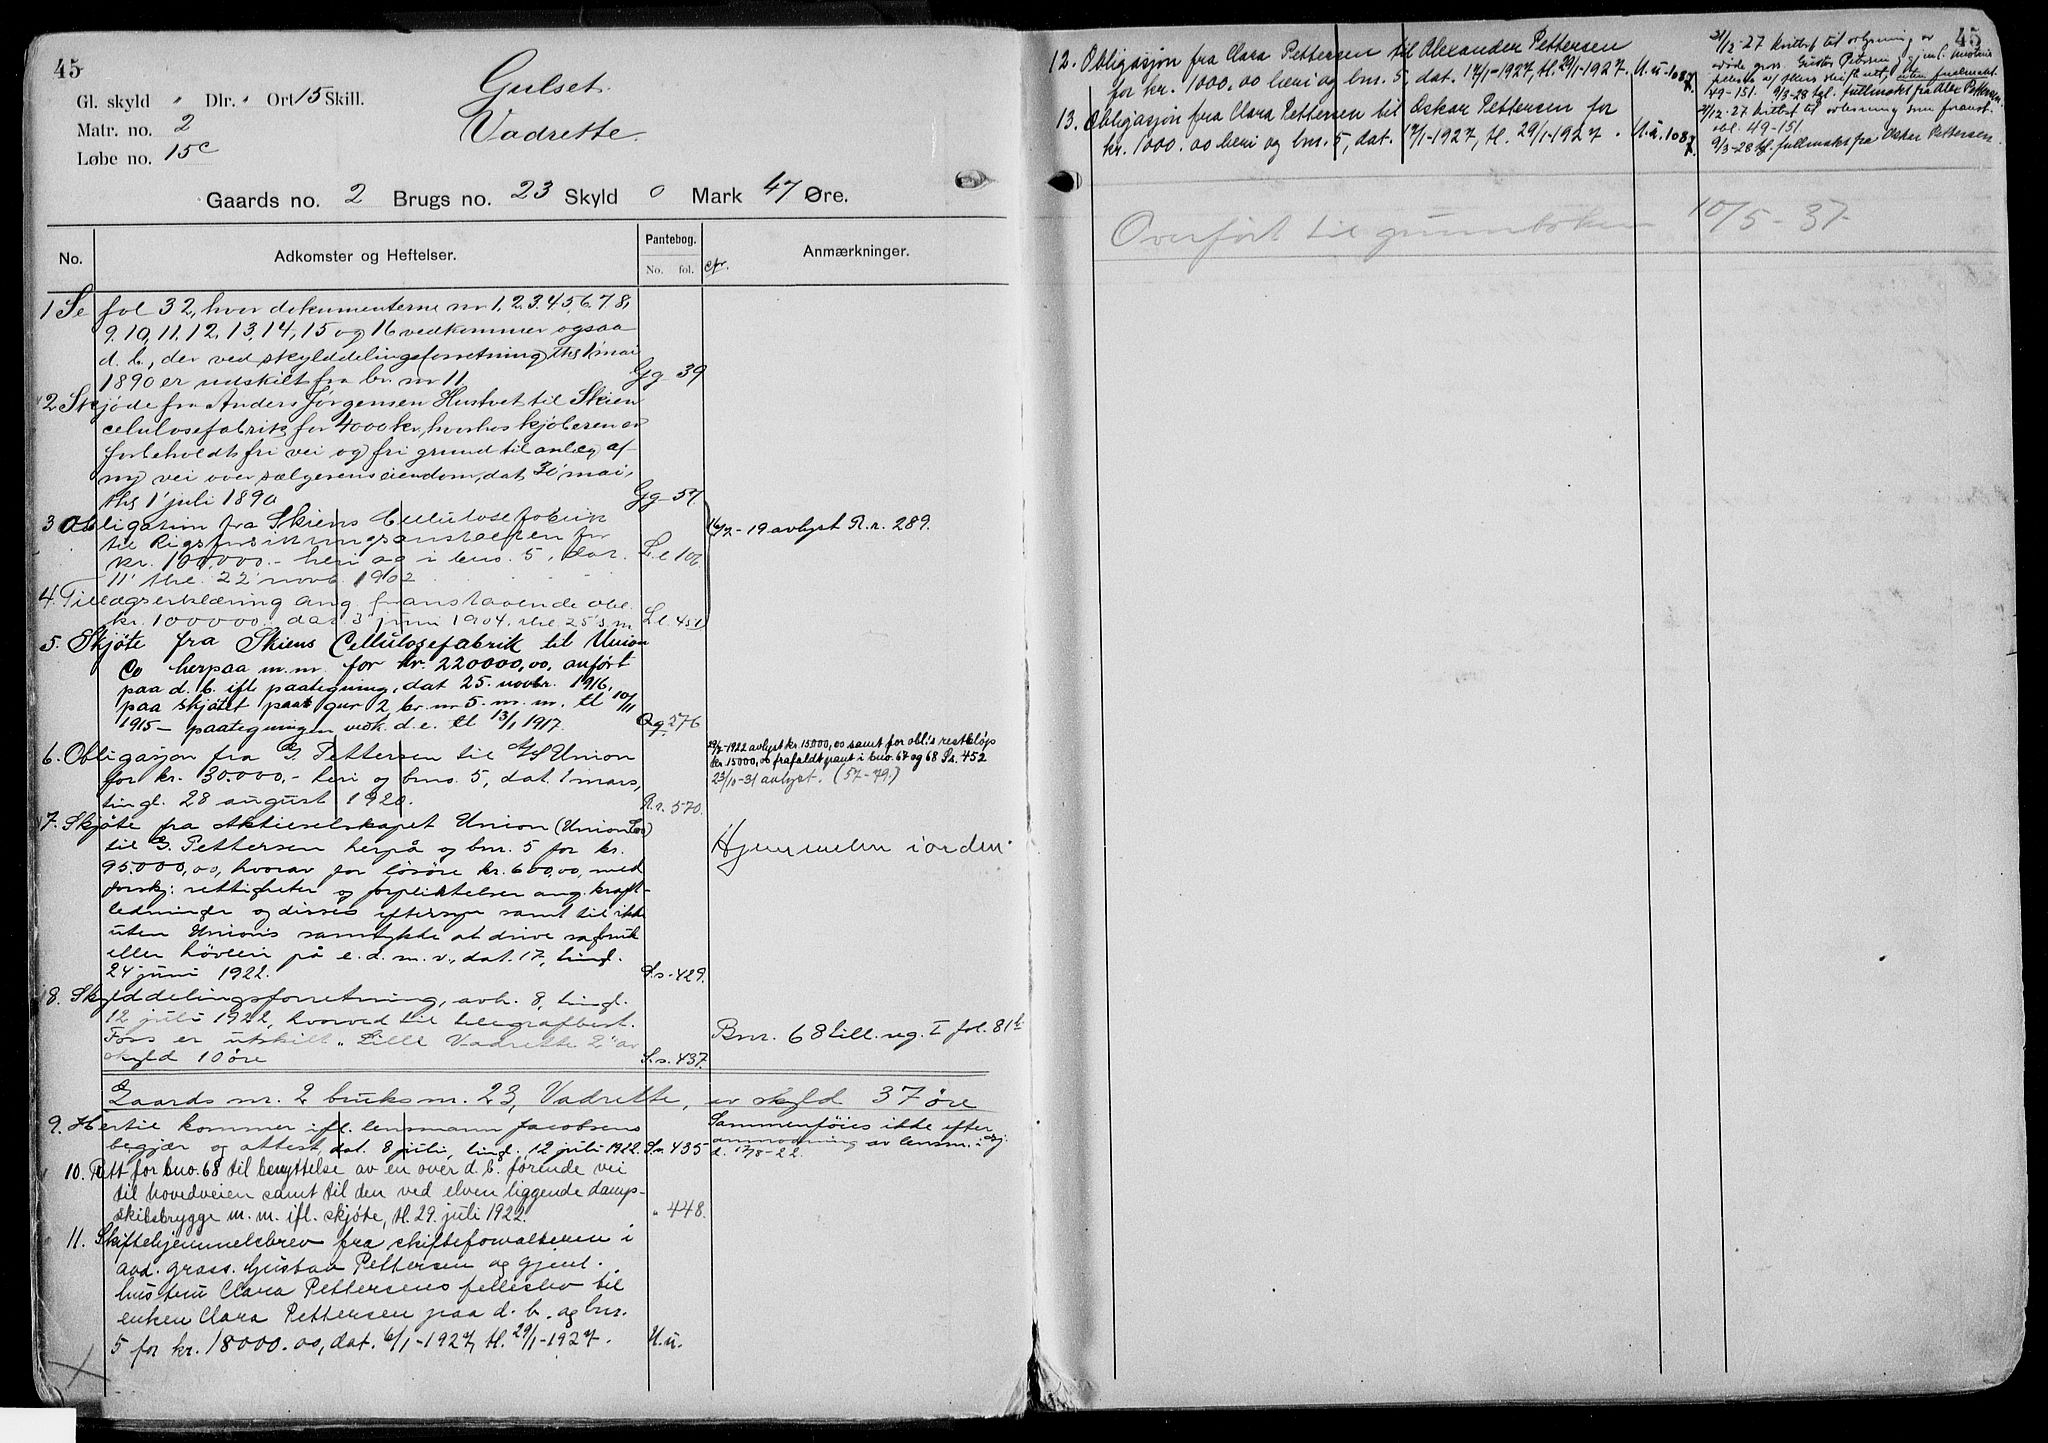 45
Gl. skyld " Dlr. " Ort 15 Skill.
Matr. no. 2
Løbe no. 15c
Gulset.
Vadrette.
Gaards no. 2 Brugs no. 23 Skyld 0 Mark 47 Øre.
No. Adkomster og Heftelser. Pantebog. No. fol. cfr. Anmærkninger.
1 Se fol 32, hvor dokumenterne nr 1, 2, 3, 4, 5, 6, 7, 8,
9, 10, 11, 12, 13, 14, 15 og 16 vedkommer ogsaa
d. b., der ved skylddelingsforretning ths 1' mai
1890 er udskilt fra br. nr 11 Gg 39
2 Skjøde fra Anders Jørgensen Hustvet til Skien
celulosefabrik for 4000 kr, hvorhos kjøberen er
forbeholdt fri vei og fri grund til anlæg af
ny vei over sælgerens eiendom, dat 30' mai,
ths 1' juli 1890 Gg 57
3 Obligation fra Skiens Cellulosefabrik
til Rigsforsikringsanstalten for
kr. 100,000.- heri og i bno. 5, dat.
11' thl. 22' novb. 1902 Ll 106
16/2 - 19 avlyst R.r. 289.
4. Tillægserklæring ang. foranstaaende obl.
kr. 100000. dat 3 juni 1904, thl. 25' s.m. Ll. 451
5. Skjöte fra Skiens Cellulosefabrik til Union
Co herpaa m.m. for kr. 220000,00, anført
paa d. b. ifl. paategning, dat 25. novbr. 1916,
paa skjøtet paa gnr 2 br. nr 5. m. m. tl 10/11
1915 - paategningen vedk. d. e. tl 13/1 1917. Qq. 276
6. Obligasjon fra G. Pettersen til A/S Union
for kr. 30.000,- heri og bno. 5, dat. 1 mars,
tingl. 28 august 1920. R.r. 570.
29/7-1922 avlyst kr. 15000,00 samt for obl.s restbeløp
kr. 15000,00 frafaldt pant i bno. 67 og 68 Ss. 452
23/10-31 avlyst. (57-79.)
7. Skjøte fra Aktieselskapet Union (Union Co)
til G. Pettersen herpå og bnr. 5 for kr.
95.000,00, hvorav for løsøre kr. 600,00, med
forskj. rettigheter og forpliktelser ang. kraft-
ledninger og disses eftersyn samt til ikke
uten Unions samtykke at drive sagbruk
eller høvleri på e. d. m. v., dat. 17, tingl.
24 juni 1922. S.s. 429.
Hjemmelen i orden.
8. Skylddelingsforretning, avh. 8, tingl.
12 juli 1922, hvorved til telegrafbest.
Foss er utskilt "Lille Vadrette 2" av
skyld 10 øre S.s. 437.
Bnr. 68 till. reg. I fol. 81 b
Gaards nr. 2 bruks nr. 23, Vadrette, av skyld 37 øre
9. Hertil kommer ifl. lensmann Jacobsens
begjær og attest, dat. 8 juli, tingl. 12 juli 1922. S.s. 435
Sammenføies ikke efter
anmodning av lensm. i skj.
d. 17/8-22.
10. Rett for bno. 68 til benyttelse av en over d. b. førende vei
til hovedveien samt til den ved elven liggende damp-
skibsbrygge m. m. ifl. skjøte, tl. 29. juli 1922. " 448.
11. Skiftehjemmelsbrev fra skifteforvalteren i
avd. grass. Gustav Pettersen og gjenl.
hustru Clara Pettersens fellesbo til
enken Clara Pettersen paa d. b. og bnr.
5 for kr. 18000.00, dat. 6/1-1927, tl. 29/1-1927. U.u.
45
12. Obligasjon fra Clara Pettersen til Alexander Pettersen
for kr. 1000.00 heri og bnr. 5, dat. 17/1-1927, tl. 29/1-1927. U.u. 1087
21/12-27 kvittert til avlysning av
avdøde grass. Gustav Petersen og
uten fuldmakt.
49-151. 9/3-28 tgl. fullmakt fra Alex Pettersen.
13. Obligasjon fra Clara Pettersen til Oskar Pettersen for
kr. 1000.00 heri og bnr. 5, dat. 17/1-1927, tl. 29/1-1927. U.u. 1087
21/12-27. kvittert til avlysning som foranst.
obl. 49-151.
9/3-28 tgl. fullmakt fra Oskar Pettersen.
Overført til grunnboken 10/5-37